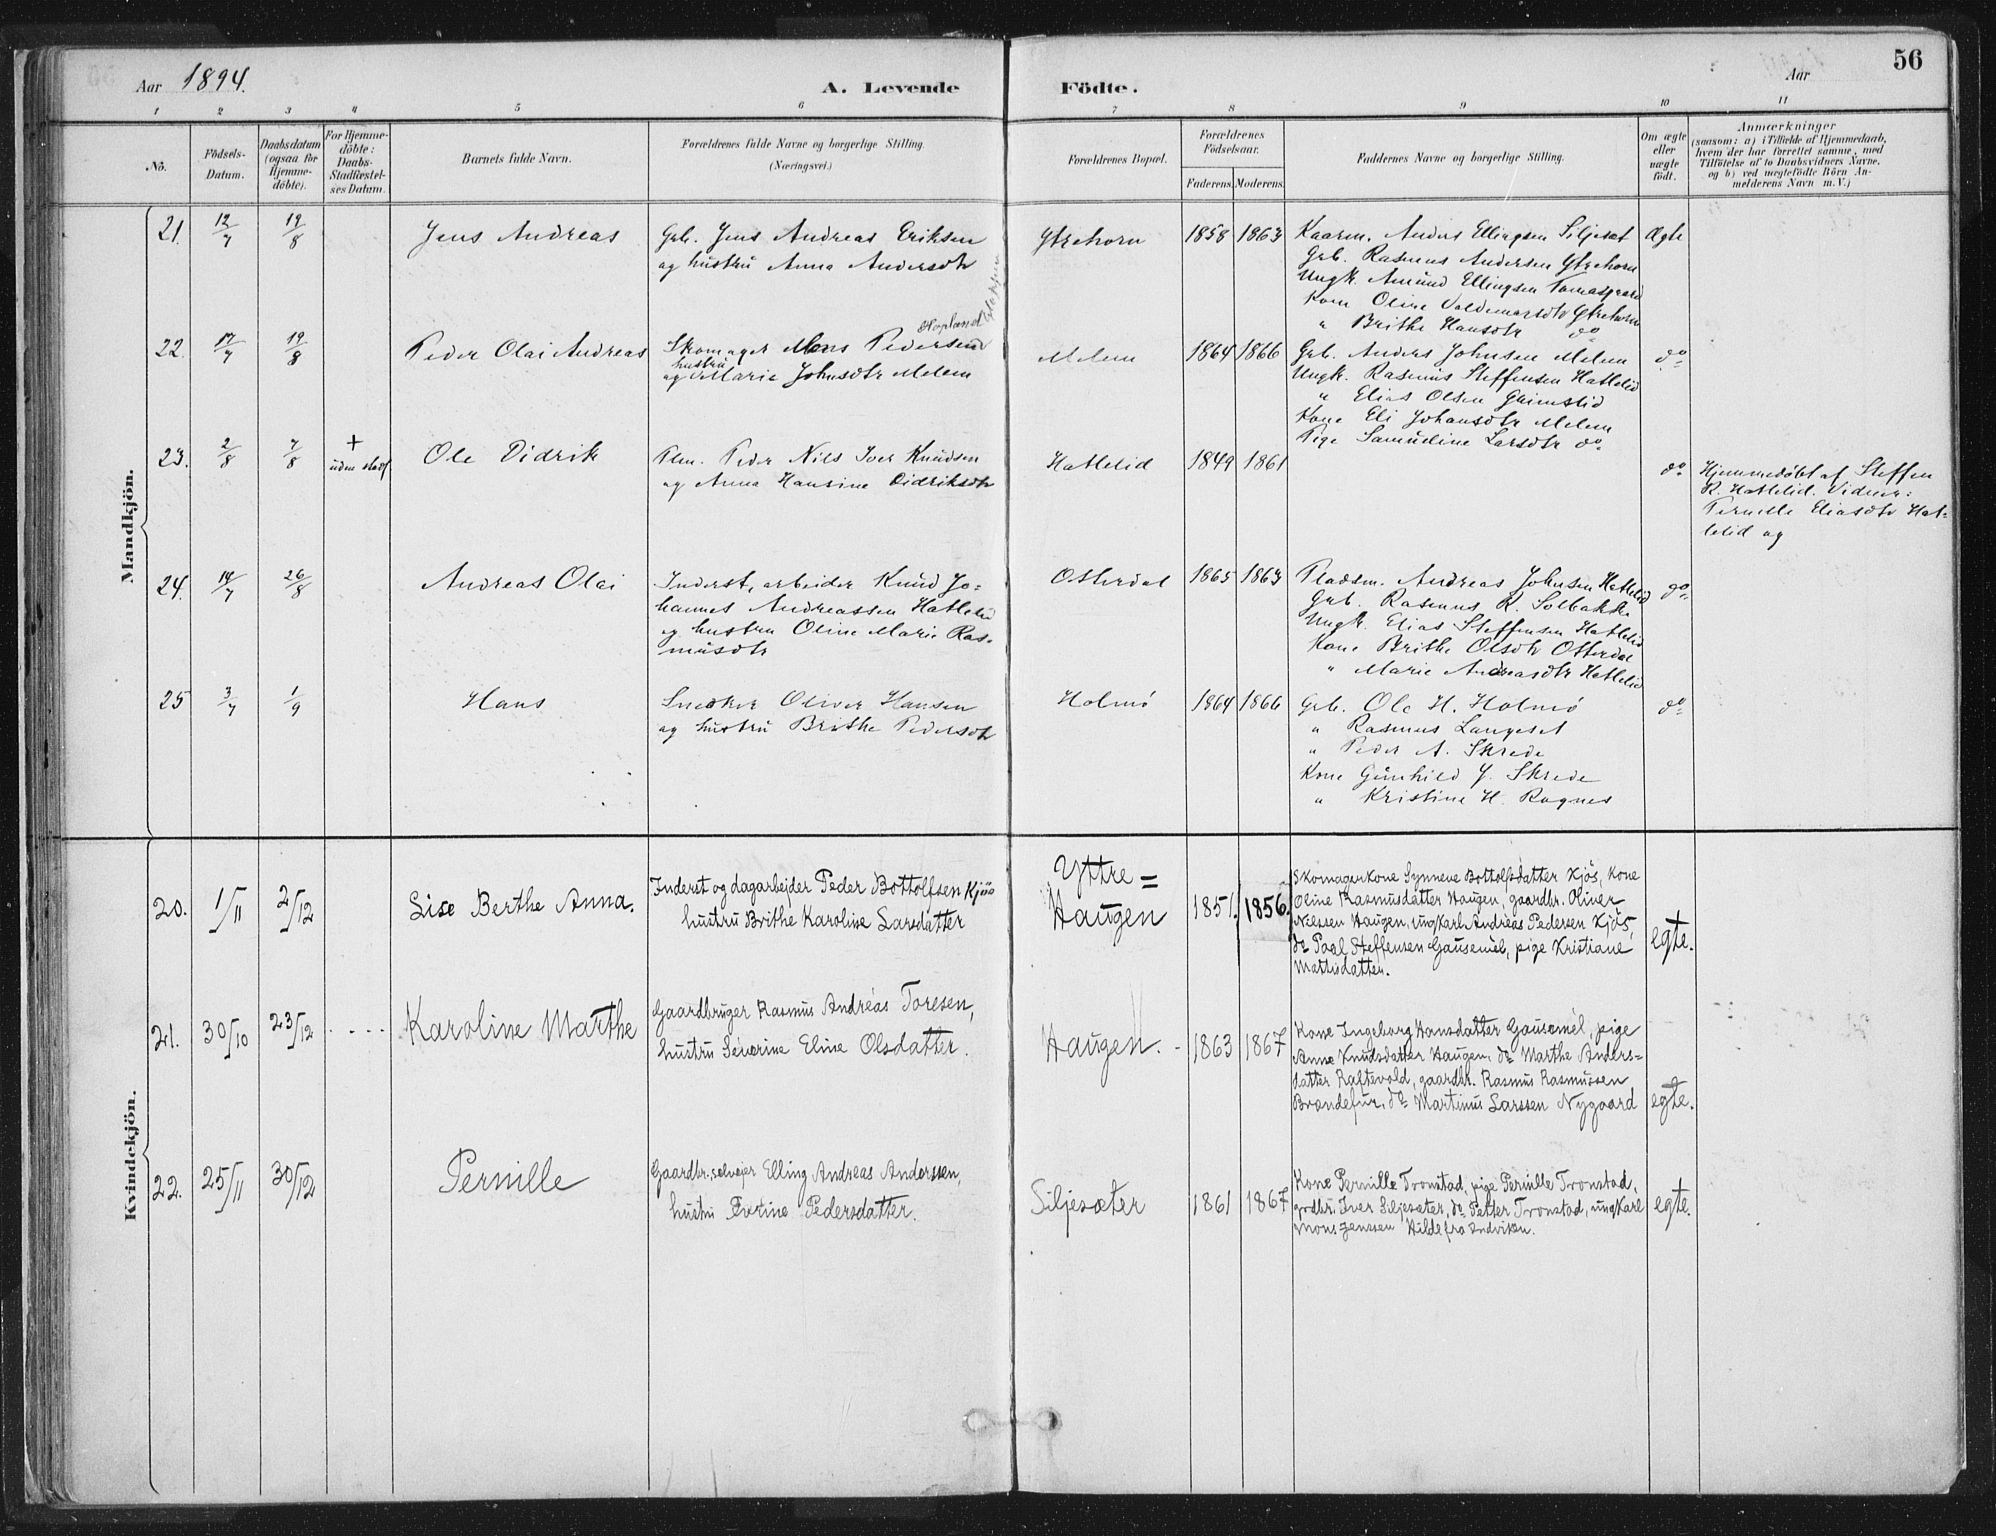 Aar 1894.
A. Levende
Födte.
Aar
56
1 2 3 4 5 6 7 8 9 10 11
No.
Födsels-
Datum.
Daabsdatum
(ogsaa for
Hjemme-
döbte).
For Hjemme-
döbte:
Daabs-
Stadfæstel-
ses Datum.
Barnets fulde Navn.
Forældrenes fulde Navne og borgerlige Stilling.
(Næringsvei.)
Forældrenes Bopæl.
Forældrenes
Födselsaar.
Faderens. Moderens.
Faddernes Navne og borgerlige Stilling.
Om ægte
eller
uægte
födt.
Anmærkninger
(saasom: a) i Tilfælde af Hjemmedaab,
hvem der har forrettet samme, med
Tilföielse af to Daabsvidners Navne.
og b) ved uægtefödte Börn An-
melderens Navn m. V.)
Mandkjön.
21. 12/7 19/8
Jens Andreas
Grb. Jens Andreas Eriksen
og hustru Anna Andersdtr
Ytrehorn
1858 1863
Kaarm. Anders Ellingsen Siljeset
Grb. Rasmus Andersen Ytrehorn
Ungk. Amund Ellingsen Tomasgaard
Kone Oline Valdemarsdtr Ytrehorn
" Brithe Hansdtr do
Ægte
22. 17/7 19/8
Peder Olai Andreas
Hopland
Skomager Mons Pedersen
hustru
og Marie Johnsdtr Melem
Melem
1864 1866
Grb. Anders Johnsen Melem
Ungk. Rasmus Steffensen Hatlelid
" Elias Olsen Heimslid
Kone Eli Johansdtr Melem
Pige Samueline Larsdtr do.
do
23. 2/8 7/8
+
uden stadf
Ole Didrik
Plm. Peder Nils Iver Knudsen
og Anna Hansine Didriksdtr
Hatlelid
1849 1861
do
Hjemmedøbt af Steffen
R. Hatlelid. Vidner:
Pernille Eliasdtr Hat-
lelid og
24. 14/7 26/8
Andreas Olai
Inderst, arbeider Knud Jo-
hannes Andreassen Hatlelid
og hustru Oline Marie Ras-
musdtr
Otterdal
1865 1863
Pladsm. Andreas Johnsen Hatlelid
Grb. Rasmus R. Solbakke
Ungk. Elias Steffensen Hatlelid
Kone Brithe Olsdtr Otterdal
" Marie Andreasdtr Hatlelid
do
25 3/7 1/9
Hans
Snedker Oliver Hansen
og hustru Brithe Pedersdtr
Holmö
1864 1866
Grb. Ole H. Holmö
" Rasmus Langeset
" Peder A. Skrede
Kone Gunhild J. Skrede
" Kristine H. Rognes
do
Kvindekjön.
20. 1/11 2/12
Lise Berthe Anna.
Inderst og dagarbejder Peder Bottolfsen Kjös
hustru Brithe Karoline Larsdatter
Yttre=
Haugen
1851. 1856.
Skomagerkone Synneve Bottolfsdatter Kjös, kone
Oline Rasmusdatter Haugen, gaardbr. Oliver
Nilssen Haugen, ungkarl Andreas Pedersen Kjös,
do Paal Steffensen Gausemel, pige Kristiane
Martisdatter.
egte.
21. 30/10 23/12
Karoline Marthe
Gaardbruger Rasmus Andreas Toresen,
hustru Severine Eline Olsdatter.
Haugen.
1863 1867
Kone Ingeborg Hansdatter Gausemel, pige
Anne Knudsdatter Haugen, do Marthe Anders-
datter Raftevold, gaardbr. Rasmus Rasmussen
Brandefur, do Martinus Larssen Nygaard
egte.
22. 25/11 30/12
Pernille
Gaardbr. selvejer Elling Andreas Anderssen,
hustru Perine Pedersdatter.
Siljesæter
1861 1867
Kone Pernille Tronstad, pige Pernille Tronstad,
grdbr. Iver Siljesæter, do Petter Tronstad, ungkarl
Mons Jenssen Hilde fra Indviken.
egte.